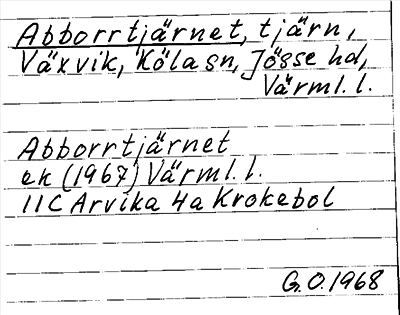 Abborrtjärnet, tjärn,
Växvik, Köla sn, Jösse hd,
Värml. l.
Abborrtjärnet
ek (1967) Värml. l.
11C Arvika 4a Krokebol
G.O. 1968